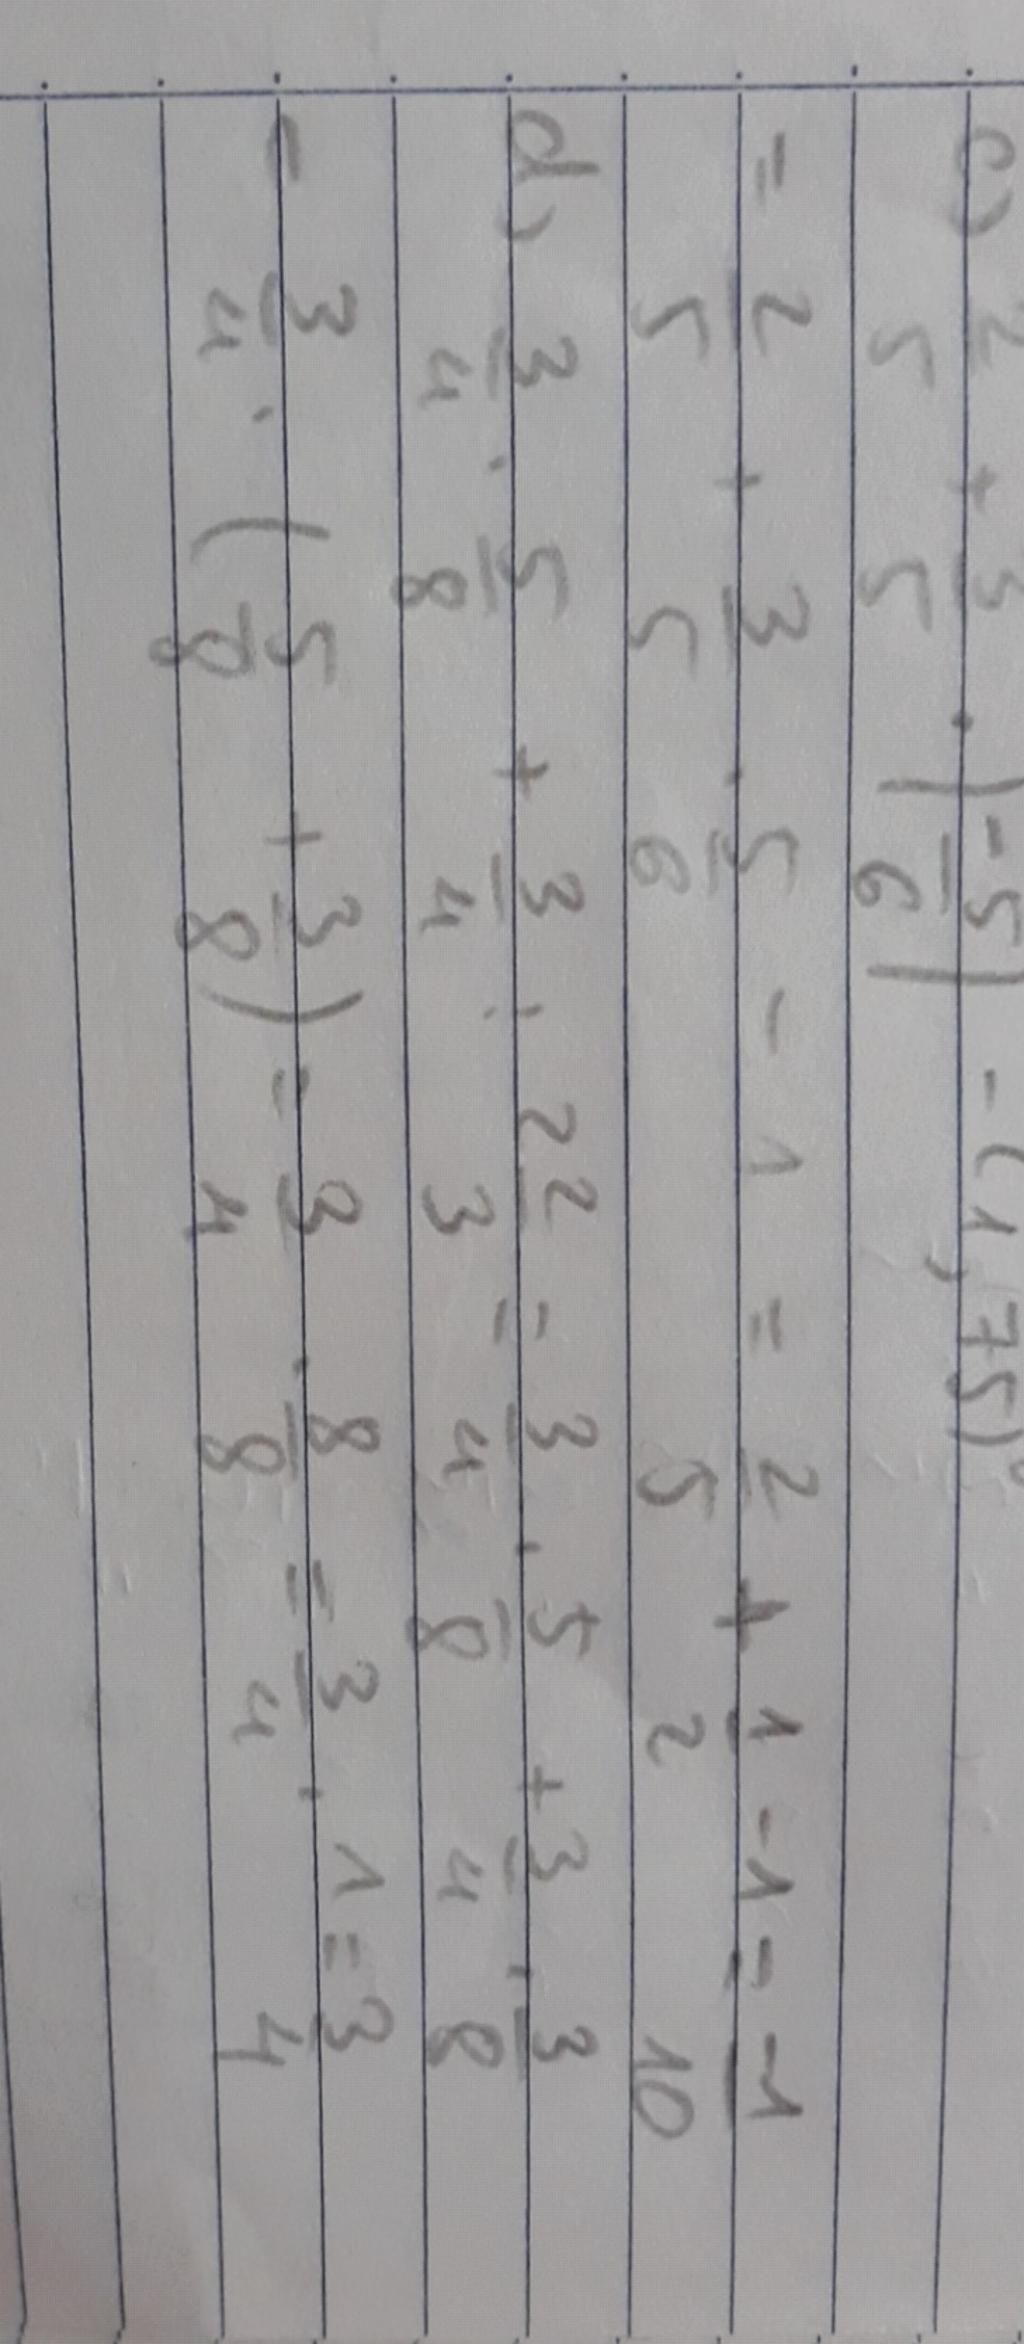 c) 2/5 + 3/5 . |-5/6| - (1,75)⁰
= 2/5 + 3/5 . 5/6 - 1 = 2/5 + 1/2 - 1 = -1/10
d) 3/4 . 5/8 + 3/4 : 2 2/3 = 3/4 . 5/8 + 3/4 . 3/8
= 3/4 . (5/8 + 3/8) = 3/4 . 8/8 = 3/4 . 1 = 3/4